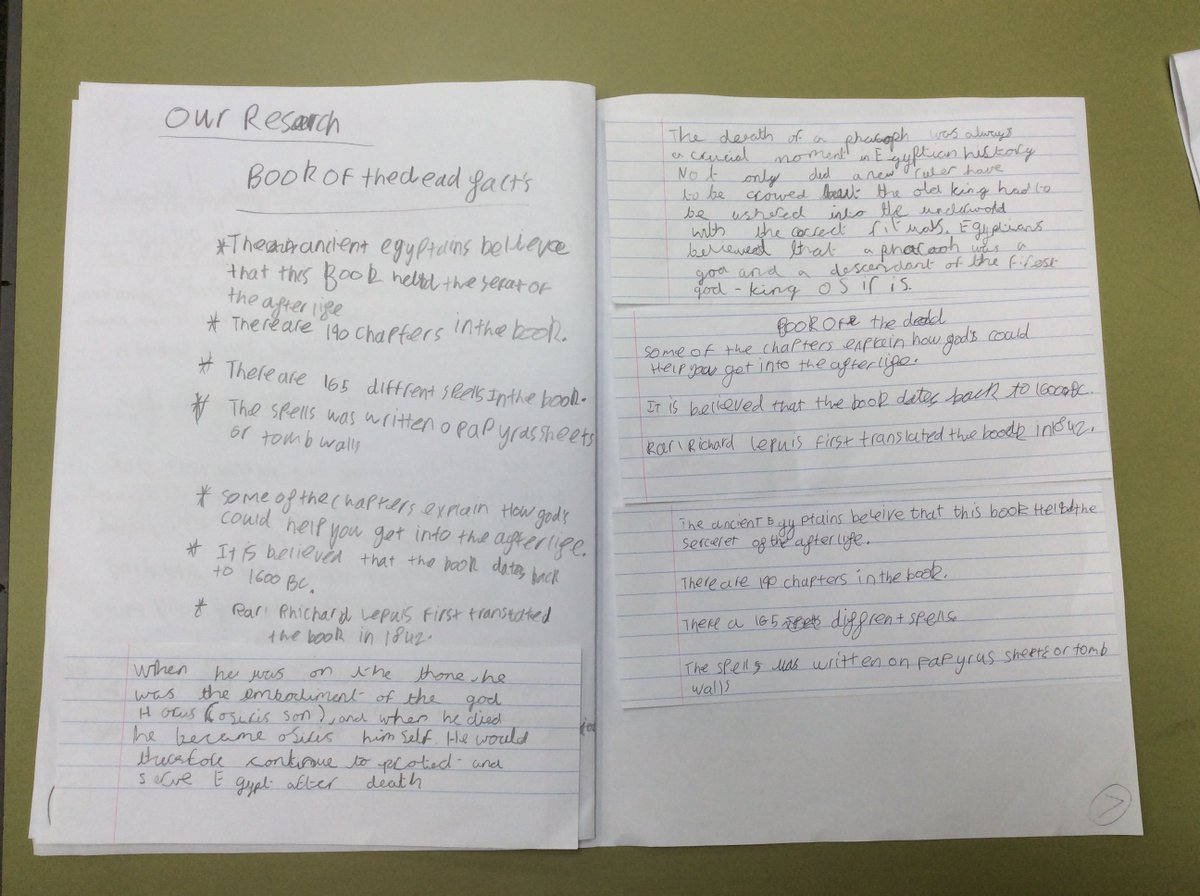 Our Research
BOOK OF the dead fact's
*The ancient egyptains believe
that this Book held the serat of
the after life
* There are 190 chapters in the book.
* There are 165 diffrent spells In the book.
* The spells was written o papyras sheets
or tomb walls
* some of the chapters explain How god's
could help you get into the after life.
* It is believed that the book dates back
to 1600 BC.
* Rarl Rhichard Lepuis first translated
the book in 1842.
When he was on the thone, he
was the embodiment of the god
Horus (osiris son), and when he died
he became osiris himself. He would
therefore continue to protect and
serve Egypt after death
The death of a pharaoh was always
a crucial moment in Egyptian history
Not only did a new ruler have
to be crowed but the old king had to
be ushered into the underworld
with the correct rituals. Egyptians
believed that a pharaoh was a
god and a descendant of the first
god-king OSIris.
BOOK OF the dead
some of the chapters explain how god's could
Help you get into the after life.
It is believed that the book dates back to 1600BC.
Rarl Richard Lepuis first translated the book in 1842.
The ancient Egyptains beleive that this book Held the
serceret of the after life.
There are 190 chapters in the book.
There a 165 diffrent spells
The spells was written on papyrus sheets or tomb
walls